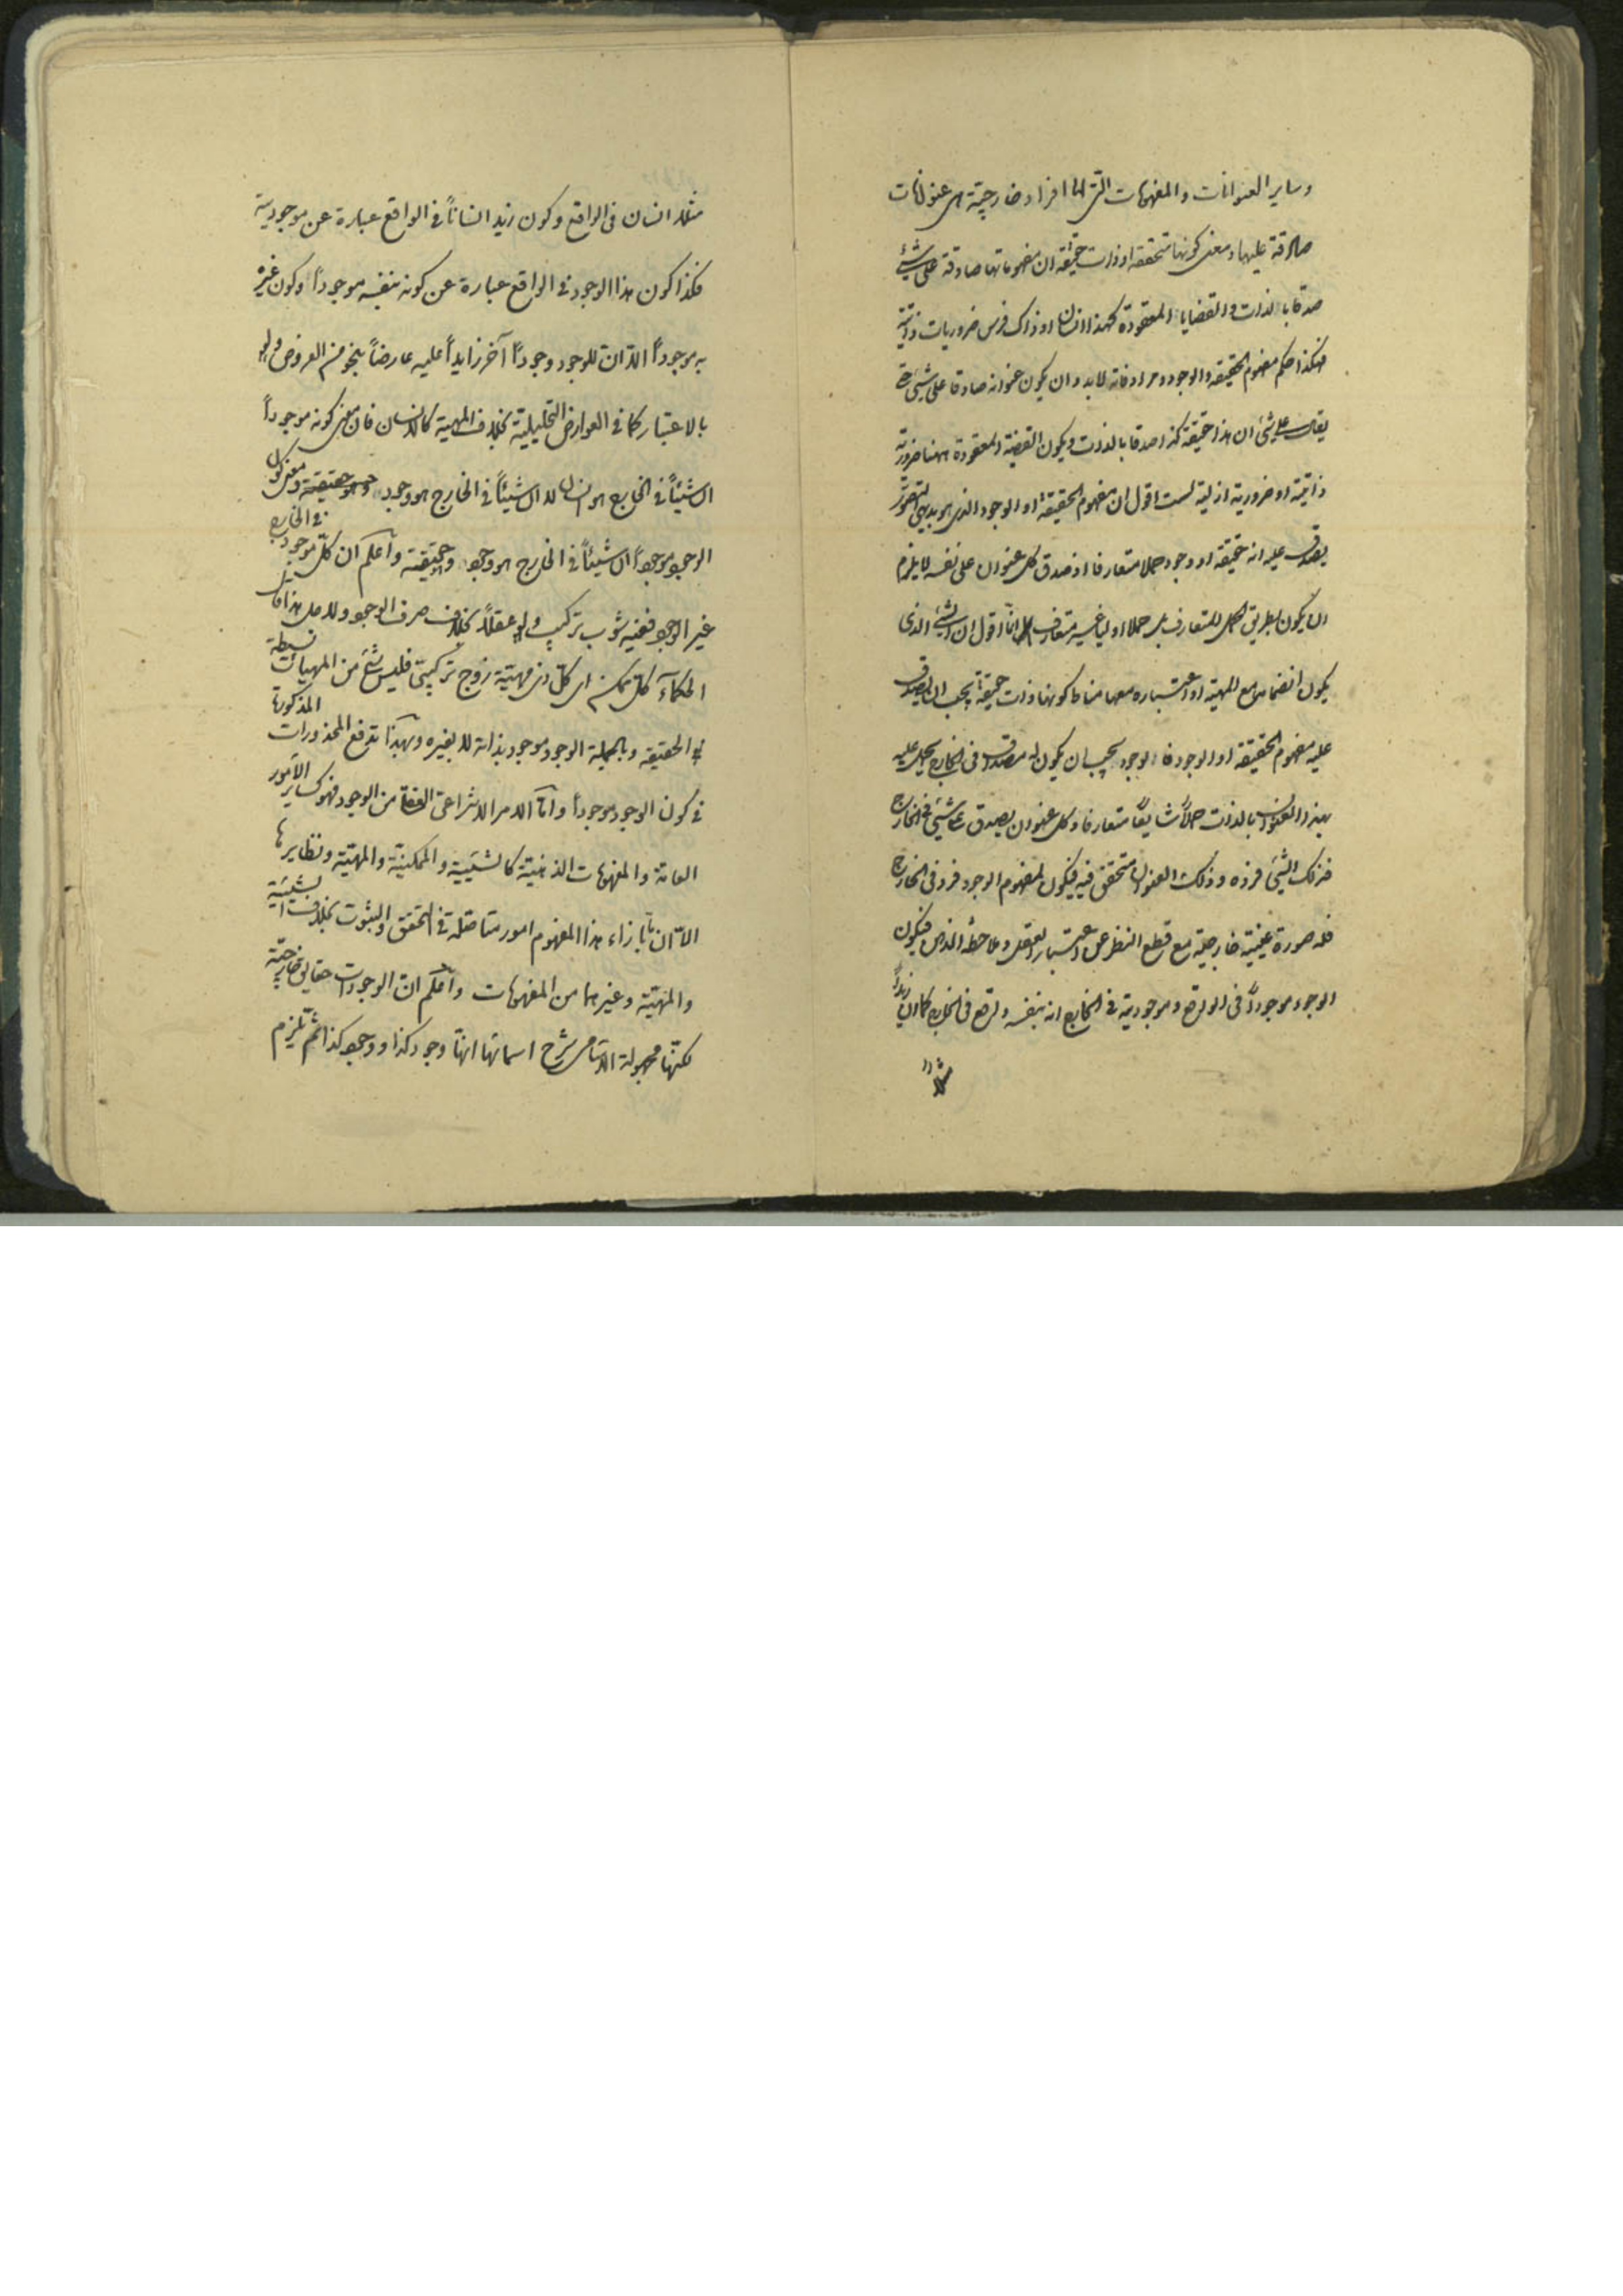 وساير العنوانات والمفهومات التي لها افراد خارجيّة هي عنوانات
صادقة عليها ومعنى كونها متحققة او ذات حقيقة ان مفهوماتها صادقة على شيء
صدقا بالذات والقضايا المعقودة كهذا انسان او ذاك فرس ضروريات ذاتية
فهكذا حكم مفهوم الحقيقة والوجود ومرادفاته لابد وان يكون عنوانه صادقا على شيء حتى
يقال على شيء ان هذا حقيقة كذا صدقا بالذات ويكون القضية المعقودة ههنا ضرورية
ذاتية او ضرورية ازلية لست اقول ان مفهوم الحقيقة او الوجود الذي هو بديهي التصور
يصدق عليه انه حقيقة او وجود حملا متعارفا اذ صدق كل عنوان على نفسه لا يلزم
ان يكون بطريق الحمل المتعارف بل حملا اوليا غير متعارف انما اقول ان الشيء الذي
يكون انضمامه مع المهيّة او اعتباره معها مناط كونها ذات حقيقة يجب ان يصدق
عليه مفهوم الحقيقة او الوجود فالوجود يجب ان يكون له مصداق في الخارج يحمل عليه
بهذا العنوان بالذات حملاً شايعًا متعارفا وكل عنوان يصدق على شيء في الخارج
فذلك الشيء فرده وذلك العنوان متحقق فيه فيكون لمفهوم الوجود فرد في الخارج
فله صورة عينية خارجية مع قطع النظر عن اعتبار العقل وملاحظة الذهن فيكون
الوجود موجوداً في الواقع وموجوديته في الخارج انه بنفسه واقع في الخارج كما ان زيداً
مثلا
مثلا انسان في الواقع وكون زيد انساناً في الواقع عبارة عن موجوديته
فكذا كون هذا الوجود في الواقع عبارة عن كونه بنفسه موجوداً وكون غيره
به موجوداً لا ان للوجود وجوداً آخر زايداً عليه عارضاً بنحو من العروض ولو
بالاعتبار كما في العوارض التحليلية بخلاف المهية كالانسان فان معنى كونه موجوداً
ان شيئاً في الخارج هو انسان لا ان شيئاً في الخارج هو وجود وهو حقيقة ومعنى كون
الوجود موجوداً ان شيئاً في الخارج هو وجود وهو حقيقة وآعلم ان كلّ موجود في الخارج
غير الوجود ففيه شوب تركيب ولو عقلاً بخلاف صرف الوجود ولاجل هذا قال
الحكمآء كلّ ممكن اى كلّ ذى مهيّة زوج تركيبيّ فليس شيء من المهيات بسيطة
في الحقيقة وبالجملة الوجود موجود بذاته لا بغيره وبهذا تدفع المحذورات المذكورة
في كون الوجود موجوداً وامّا الامر الانتزاعي العقلي من الوجود فهو كساير الامور
العامة والمفهومات الذهنيّة كالشيئية والممكنيّة والمهيّة ونظايرها
الاّ ان ما بازاء هذا المفهوم امور متاصّلة في التحقق والثبوت بخلاف الشيئية
والمهيّة وغيرهما من المفهومات وآعلم انّ الوجودات حقايق خارجيّة
لكنّها مجهولة الاسامى شرح اسمائها انها وجود كذا ووجود كذا ثمّ يلزم